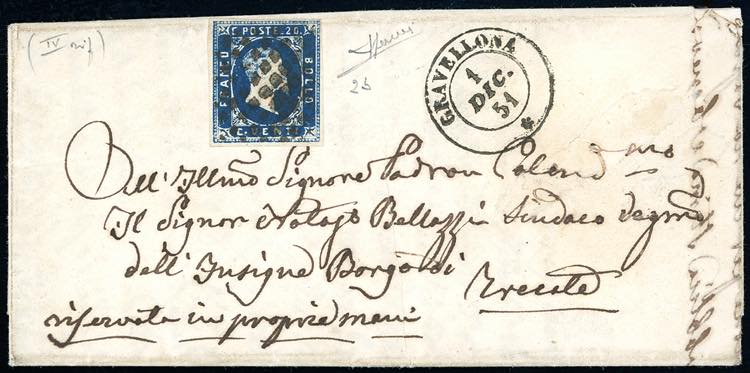 (IV rif)
C. POSTE. 20.
FRANCO
BOLLO
C. VENTI
2b
GRAVELLONA
1
DIC.
51
All'Illmo Signore Padron Colendmo
Il Signor Notajo Bellazzi Sindaco degmo
dell'Insigne Borgo di
Trecate
riservata in proprie mani